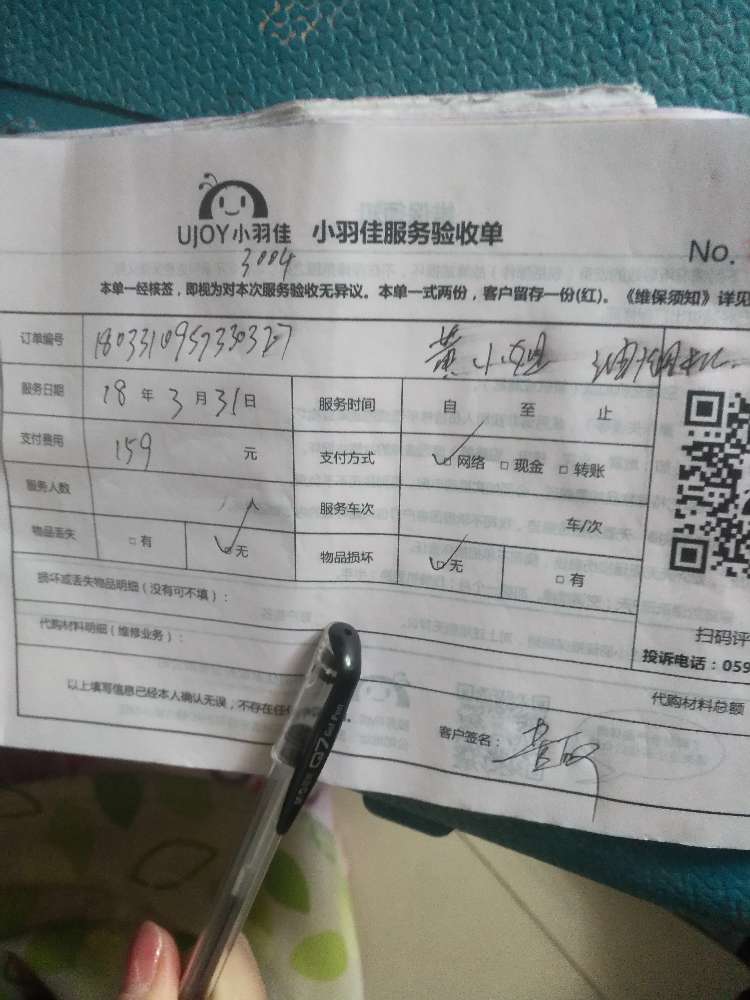 UJOY小羽佳 小羽佳服务验收单
No.
3004
本单一经核签，即视为对本次服务验收无异议。本单一式两份，客户留存一份(红)。《维保须知》详见
订单编号 黄小姐 油烟机
服务日期 18 年 3 月 31 日 服务时间 自 至 止
支付费用 159 元 支付方式 网络 现金 转账
服务人数 人 服务车次 车/次
物品丢失 有 无 物品损坏 无 有
损坏或丢失物品明细（没有可不填）：
扫码评
代购材料明细（维修业务）：
投诉电话：059
代购材料总额
以上填写信息已经本人确认无误，不存在任
客户签名：
Q7 Gel Pen